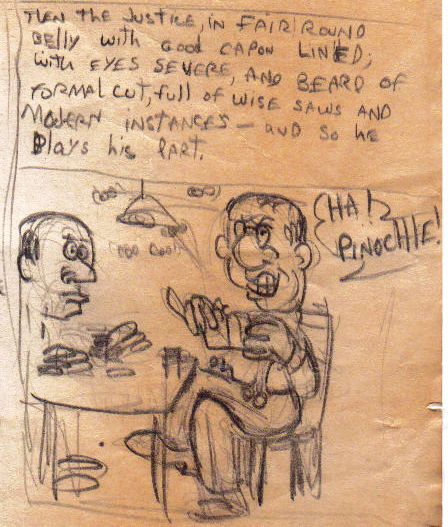 THEN THE JUSTICE, IN FAIR ROUND
BELLY WITH GOOD CAPON LINED;
with EYES SEVERE, AND BEARD OF
FORMAL CUT, full of WISE SAWS AND
MODERN INSTANCES — and so he
Plays his PART.
HA!
PINOCHLE!